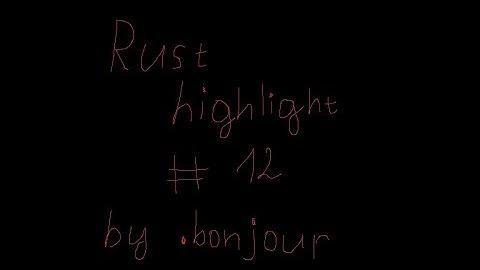 Rust
highlight
# 12
by .bonjour